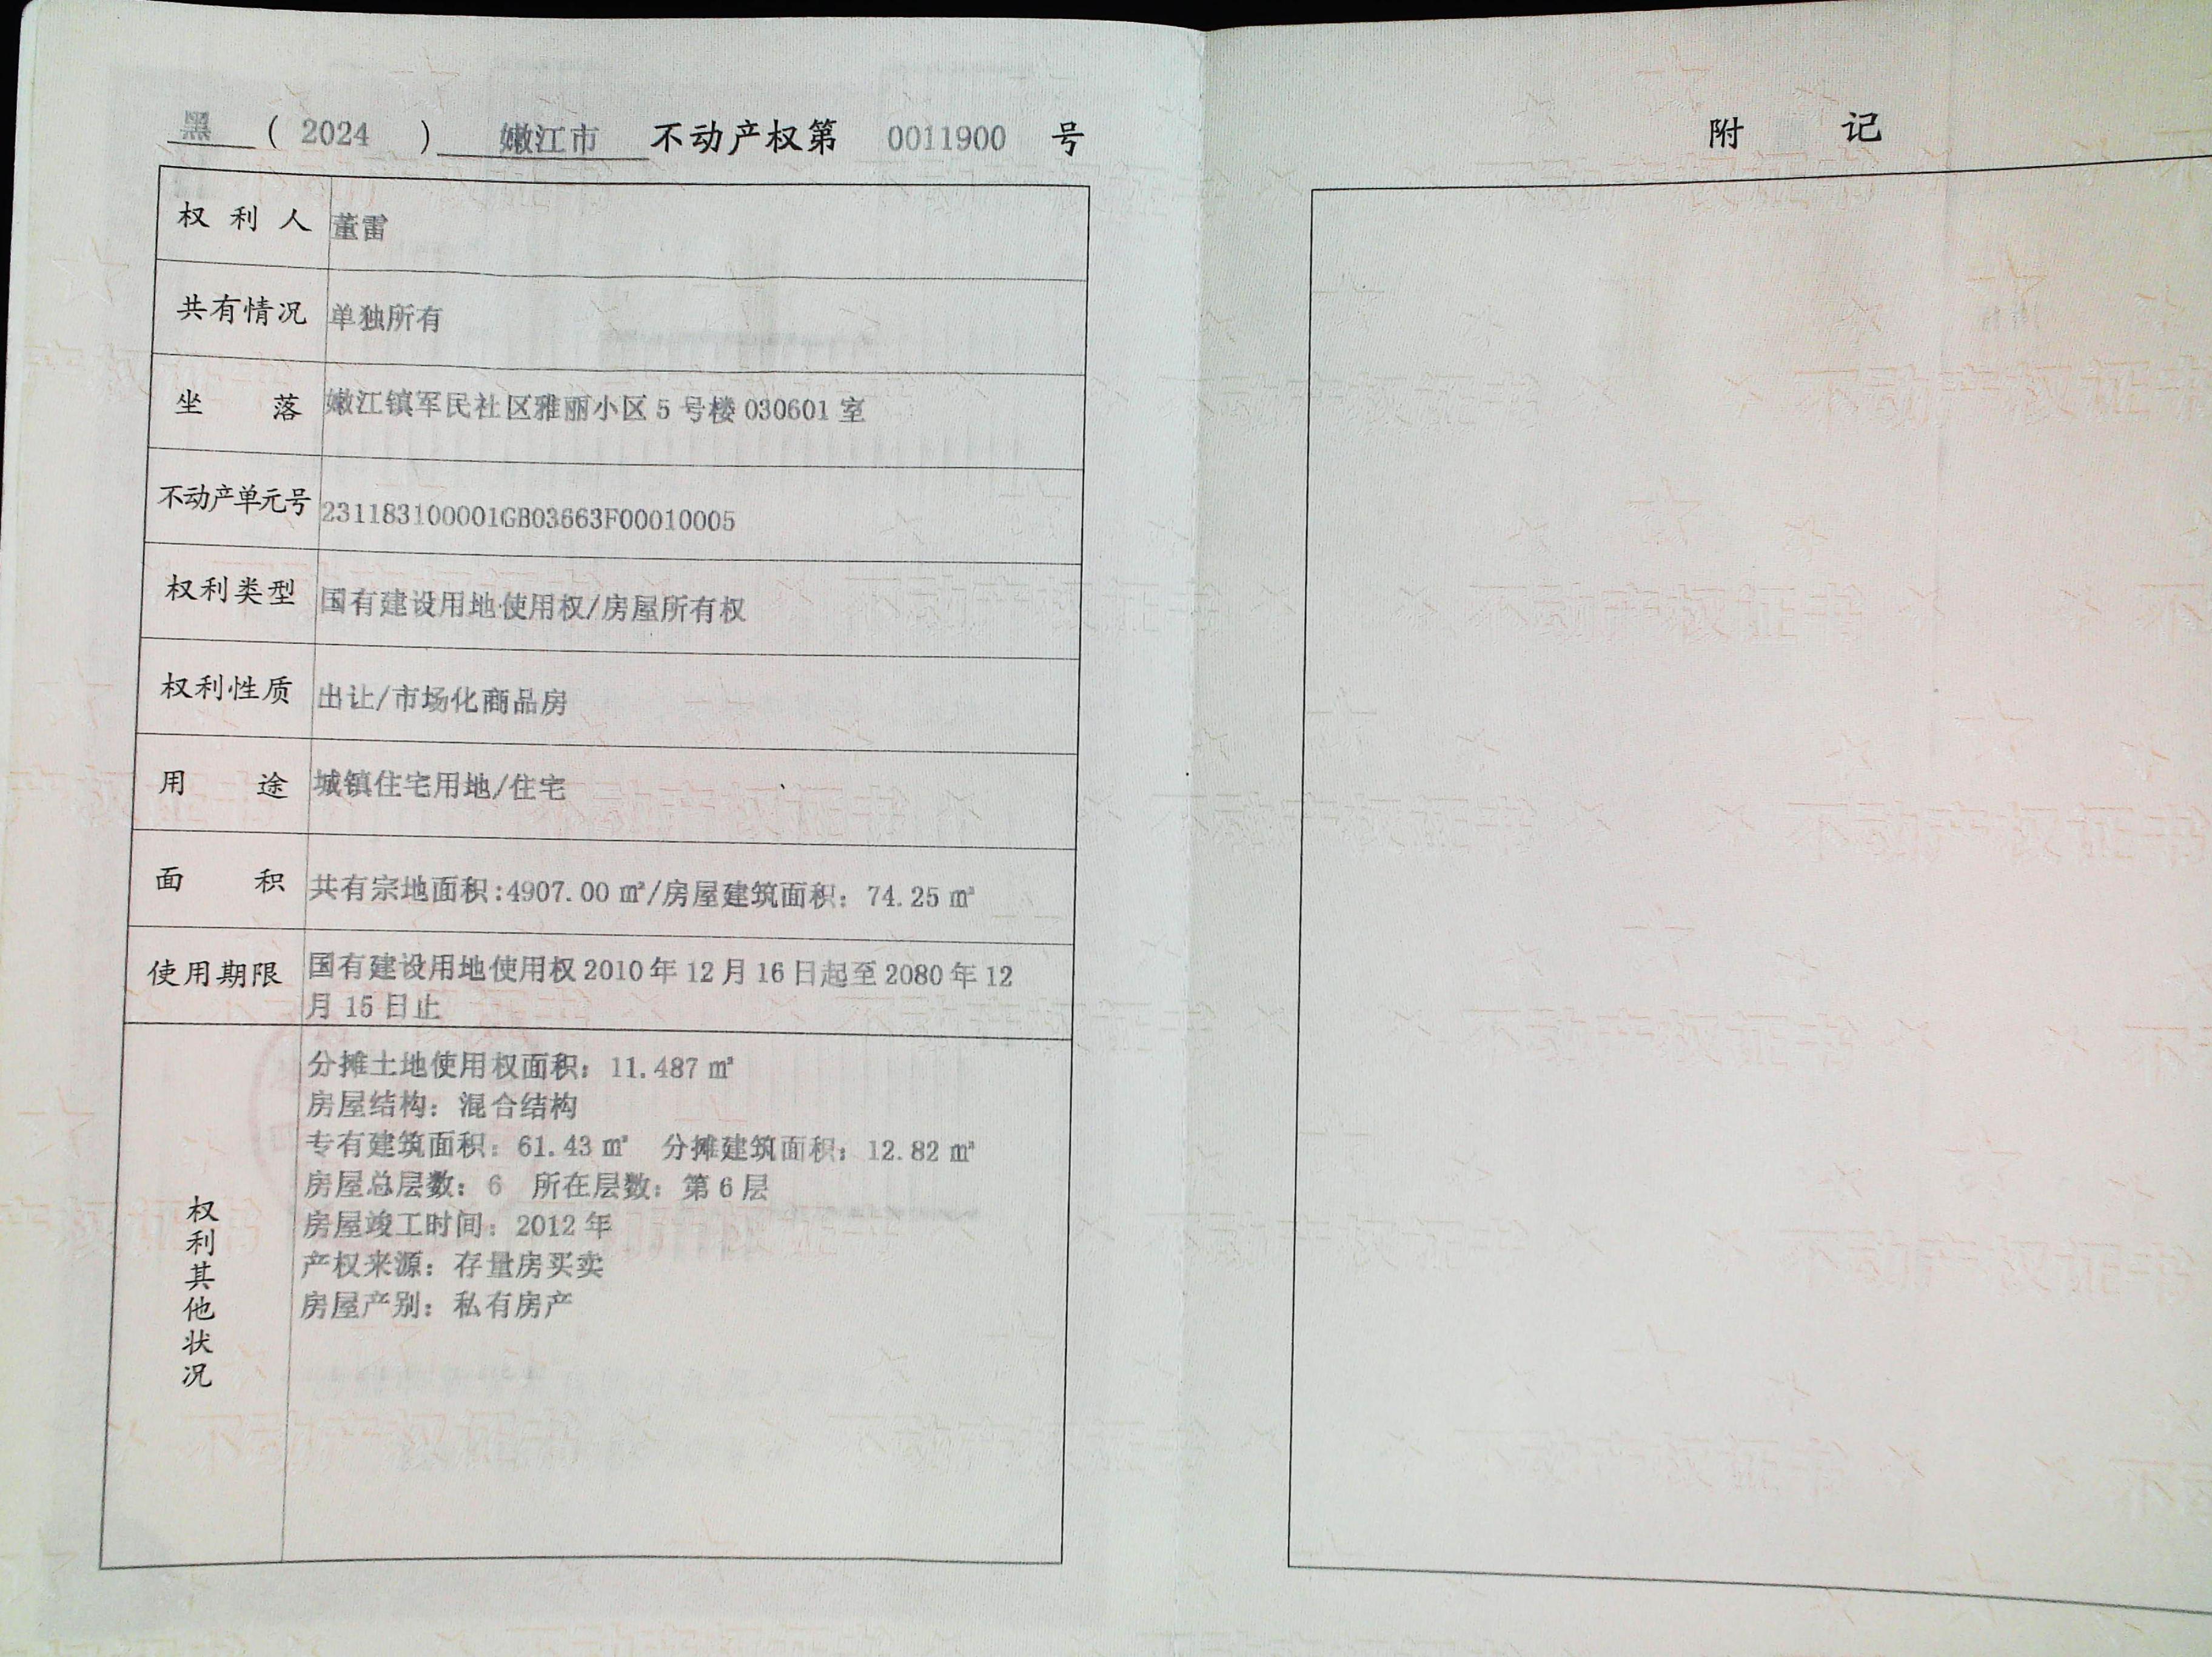 黑 ( 2024 ) 嫩江市 不动产权第 0011900 号
权利人 董雷
共有情况 单独所有
坐落 嫩江镇军民社区雅丽小区 5 号楼 030601 室
不动产单元号 231183100001GB03663F00010005
权利类型 国有建设用地使用权/房屋所有权
权利性质 出让/市场化商品房
用途 城镇住宅用地/住宅
面积 共有宗地面积:4907.00 ㎡/房屋建筑面积: 74.25 ㎡
使用期限 国有建设用地使用权 2010 年 12 月 16 日起至 2080 年 12
月 15 日止
权利其他状况
分摊土地使用权面积: 11.487 ㎡
房屋结构: 混合结构
专有建筑面积: 61.43 ㎡ 分摊建筑面积: 12.82 ㎡
房屋总层数: 6 所在层数: 第 6 层
房屋竣工时间: 2012 年
产权来源: 存量房买卖
房屋产别: 私有房产
附 记